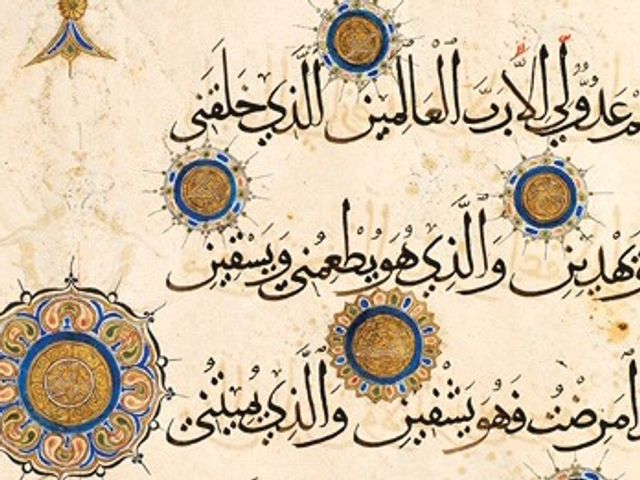 عَدُوٌّ لِي إِلَّا رَبَّ الْعَالَمِينَ الَّذِي خَلَقَنِي
يَهْدِينِ وَالَّذِي هُوَ يُطْعِمُنِي وَيَسْقِينِ
مَرِضْتُ فَهُوَ يَشْفِينِ وَالَّذِي يُمِيتُنِي